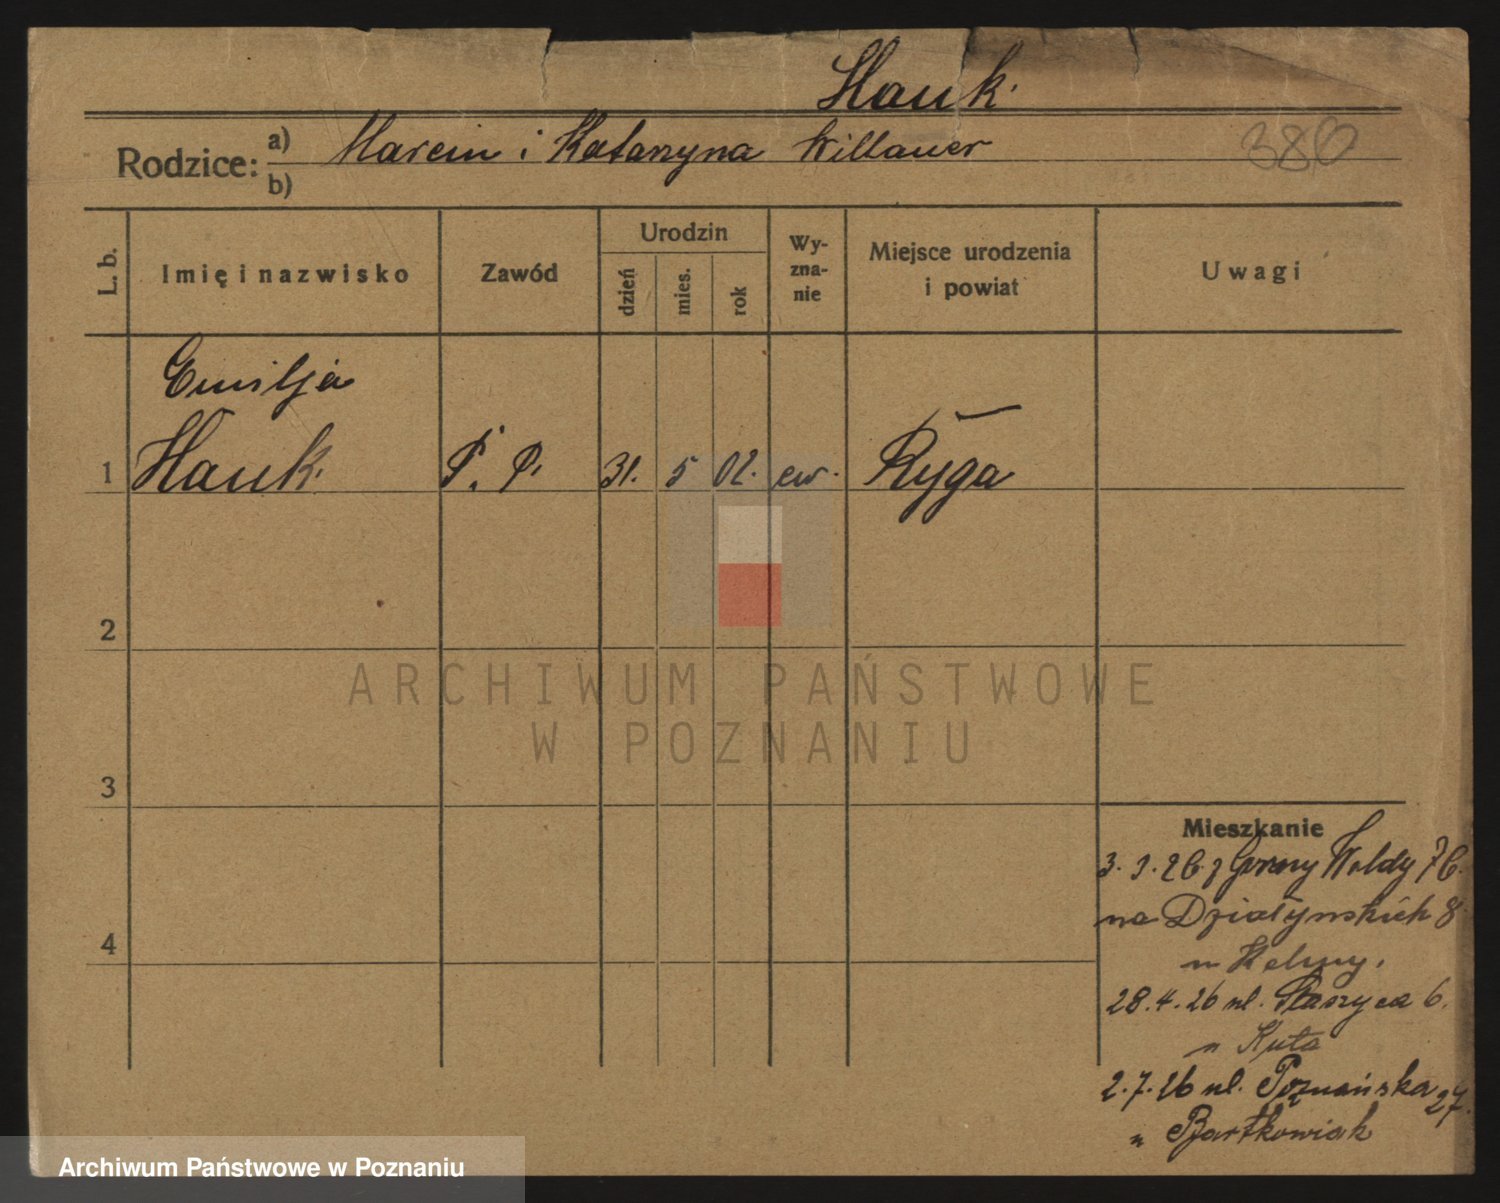 Hauk.
Rodzice: a) Marcin i Katarzyna Willauer
b)
380
L. b.
Imię i nazwisko
Zawód
Urodzin
dzień
mies.
rok
Wy-
zna-
nie
Miejsce urodzenia
i powiat
Uwagi
Emilja
1 Hauk. P. P. 31. 5 02. ew. Ryga
2
ARCHIWUM PAŃSTWOWE
W POZNANIU
3
Mieszkanie
3. 26. z Woldy 76.
na Działyńskich 8
4
28.4.26 ul. Staszyca 6.
u Kuta
2.7.26 ul. Poznańska 27.
u Bartkowiak
Archiwum Państwowe w Poznaniu